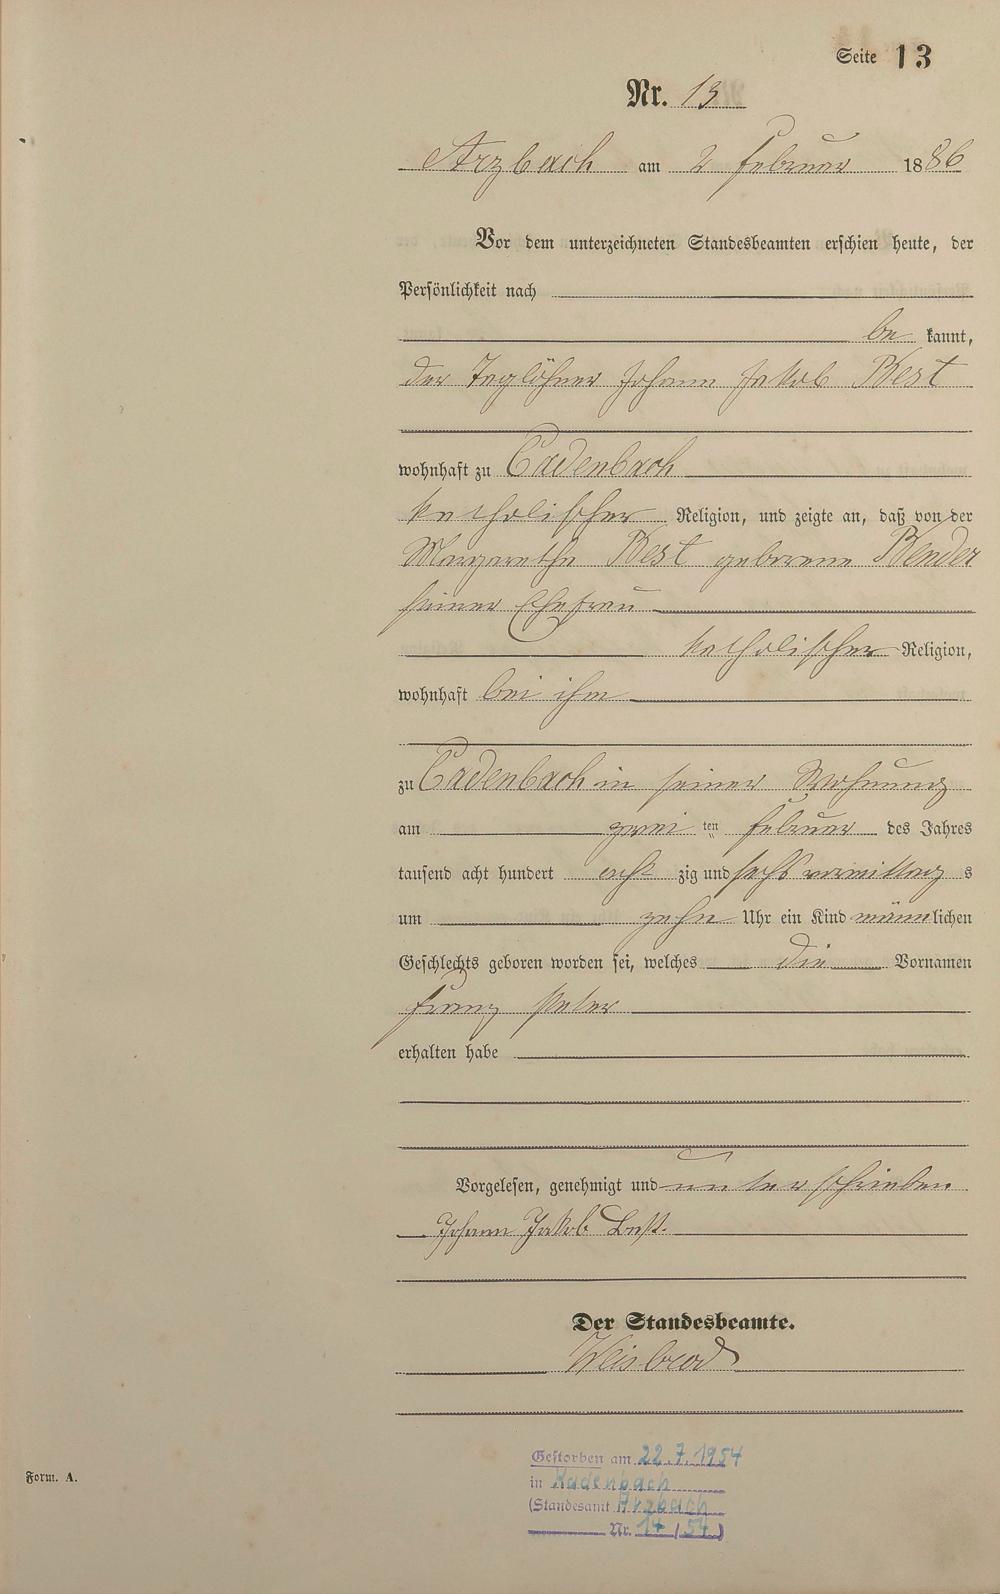 Seite 13
Nr. 13
Arzbach am 2 Februar 1886
Vor dem unterzeichneten Standesbeamten erschien heute, der
Persönlichkeit nach
be kannt,
der Taglöhner Johann Jakob Best
wohnhaft zu Cadenbach
katholischer Religion, und zeigte an, daß von der
Margarethe Best geborene Bender
seiner Ehefrau
katholischer Religion,
wohnhaft bei ihm
zu Cadenbach in seiner Wohnung
am zwei ten Februar des Jahres
tausend acht hundert acht zig und sechs vormittag s
um zehn Uhr ein Kind männlichen
Geschlechts geboren worden sei, welches die Vornamen
Franz Peter
erhalten habe
Vorgelesen, genehmigt und unterschrieben
Johann Jakob Best.
Der Standesbeamte.
Weisbrod
Form. A.
Gestorben am 22.7.1954
in Kadenbach
(Standesamt Arzbach
Nr. 14 (54)